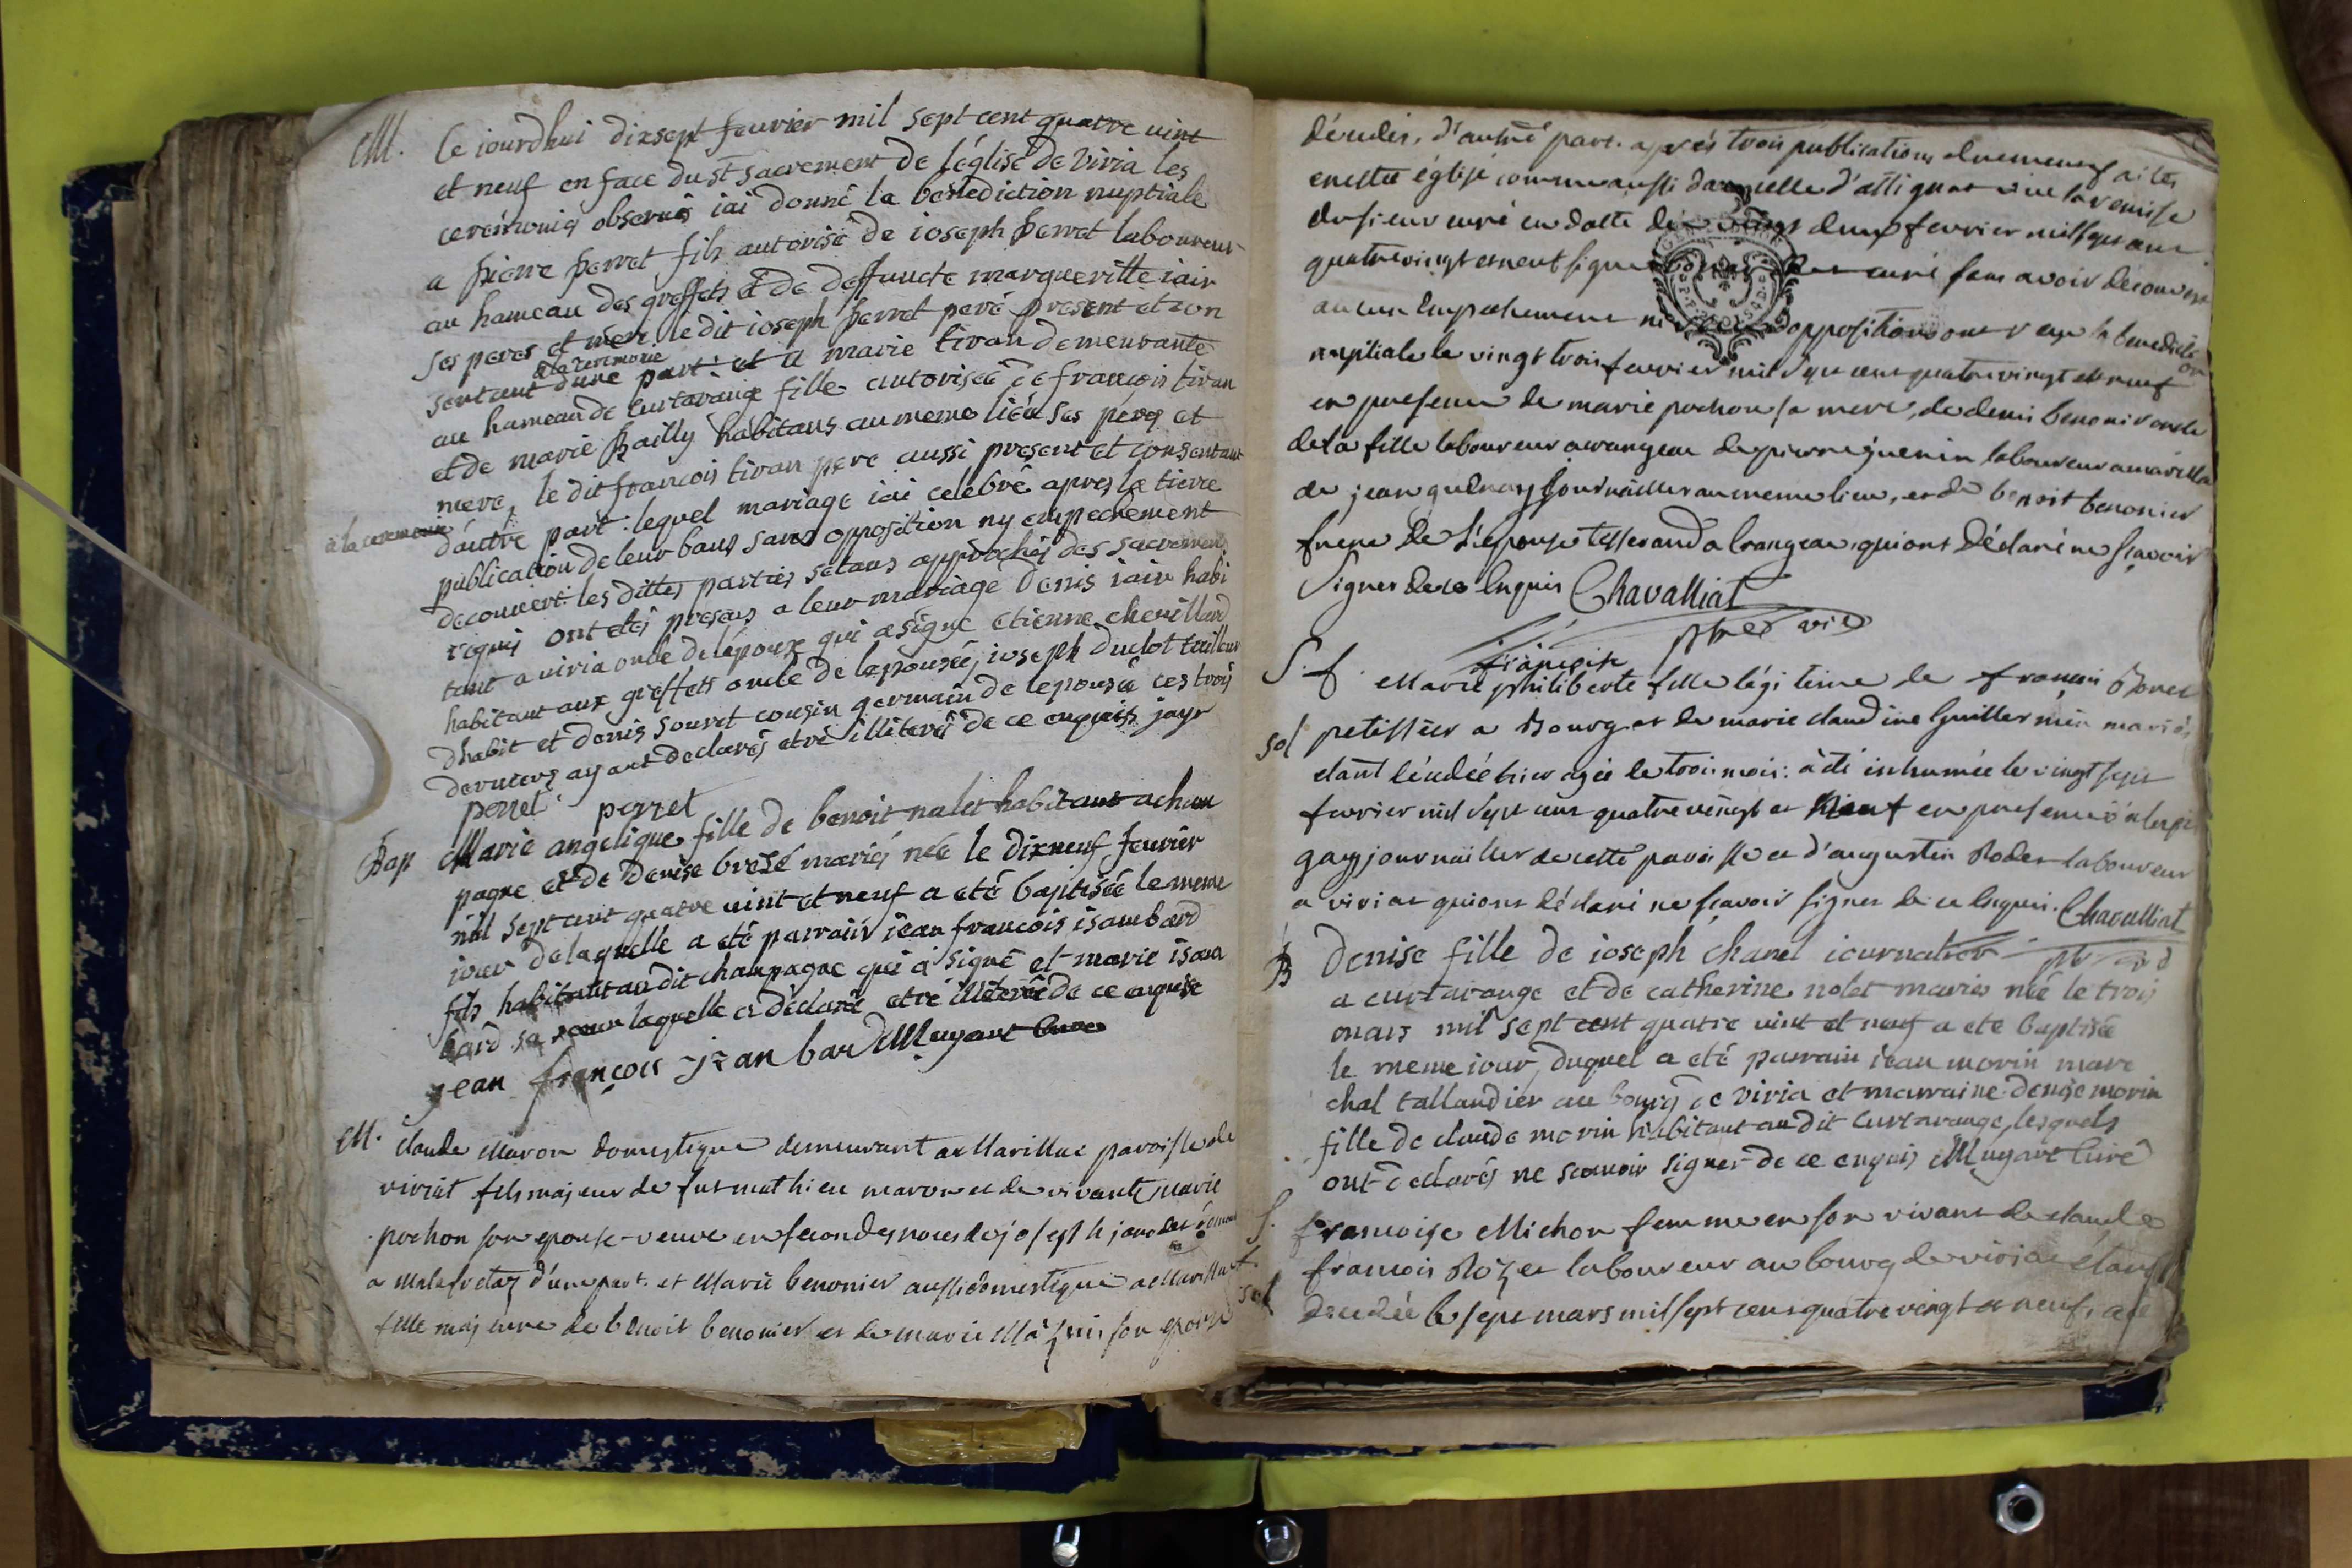 M. Ce iourdhui dixsept feuvrier mil sept cent quatre vint
et neuf en face du st sacrement de l'église de Viria les
ceremonies observés iai donné la benediction nuptiale
a pierre perret fils autorisé de ioseph perret laboureur
au hameau des greffets et de deffuncte margueritte iair
ses peres et mere, le dit ioseph perret pere present et con
sentant à la ceremonie d'une part: et a marie tivan demeurante
au hameau de curtarange fille autorisée de françois tivan
et de marie Bailly habitans au meme lieu ses peres et
mere, le dit françois tivan pere aussi present et consentant
à la ceremonie d'autre part: lequel mariage iai celebré apres la tierce
publication de leur bans sans opposition ny empechement
decouvert. les dittes parties setans approchés des sacremens
requis ont etés presens a leur mariage Denis iair habi
tant a viria oncle de l'époux qui a signé etienne chevillard
habitant aux greffets oncle de l'epousée, ioseph duclot tailleur
dhabit et denis souret cousin germain de lepousée ces trois
derniers ayant declarés etre illiterés de ce enquis jayr
perret perret
Bap Marie angelique fille de benoit nalet habitant a cham
pagne et de Denise brosé mariés née le dixneuf feuvrier
mil sept cent quatre vint et neuf a eté baptisée le meme
iour delaquelle a eté parrain iean françois isambard
fils habitant au dit champagne qui a signé et marie isam
bard sa soeur laquelle a déclaré etre illiterée de ce enquise
jean françois jzanbard Mugare Curé
M. Claude Maron domestique demeurant a Marillac paroisse de
viriat fils majeur de fut mathieu maron et de vivante marie
pochon son epouse veuve en secondes noces de joseph
a Malafretaz d'une part. et Marie benonier aussi domestique a Marillat
fille majeure de benoit benonier et de marie son epouse
décedés, d'autre part. après trois publications duement faites
en cette église comme aussi dans celle d'attignat vue la remise
du sieur curé en datte du vingt deux fevrier mil sept cent
quatrevingt et neuf signé curé sans avoir decouvert
aucun empechement ni opposition ont reçu la benediction
nuptiale le vingt trois fevrier mil sept cent quatrevingt et neuf
en presence de marie pochon sa mere, de denis benonier oncle
de la fille laboureur a crangeac de pierre guenin laboureur a marillat
de jean journaillier au meme lieu, et de benoit benonier
frere de l'épouse tisserand a Crangeac, qui ont déclaré ne sçavoir
signer de ce enquis Chavalliat
S. f. Marie françoise philiberte fille légitime de françois
petissier a Bourg et de marie claudine Guillermin mariés
sol étant décédée hier agée de trois mois: à été inhumée le vingt sept
fevrier mil sept cent quatre vingt et neuf en presence
gay journaillier de cette paroisse et d'augustin Rodet laboureur
a viriat qui ont déclaré ne sçavoir signer de ce enquis. Chavalliat
B Denise fille de ioseph chanel iournalier
a curtarange et de catherine nolet mariés née le trois
mars mil sept cent quatre vint et neuf a eté baptisée
le meme iour, duquel a eté parrain iean morin mare
chal tallandier au bourg de viria et marraine denise morin
fille de claude morin habitant au dit curtarange, lesquels
ont declarés ne scavoir signer de ce enquis Mugare Curé
S. f. françoise Michon femme en son vivant de claude
françois Rozet laboureur au bourg de viriat étant
sol decedée le sept mars mil sept cent quatre vingt et neuf, a eté